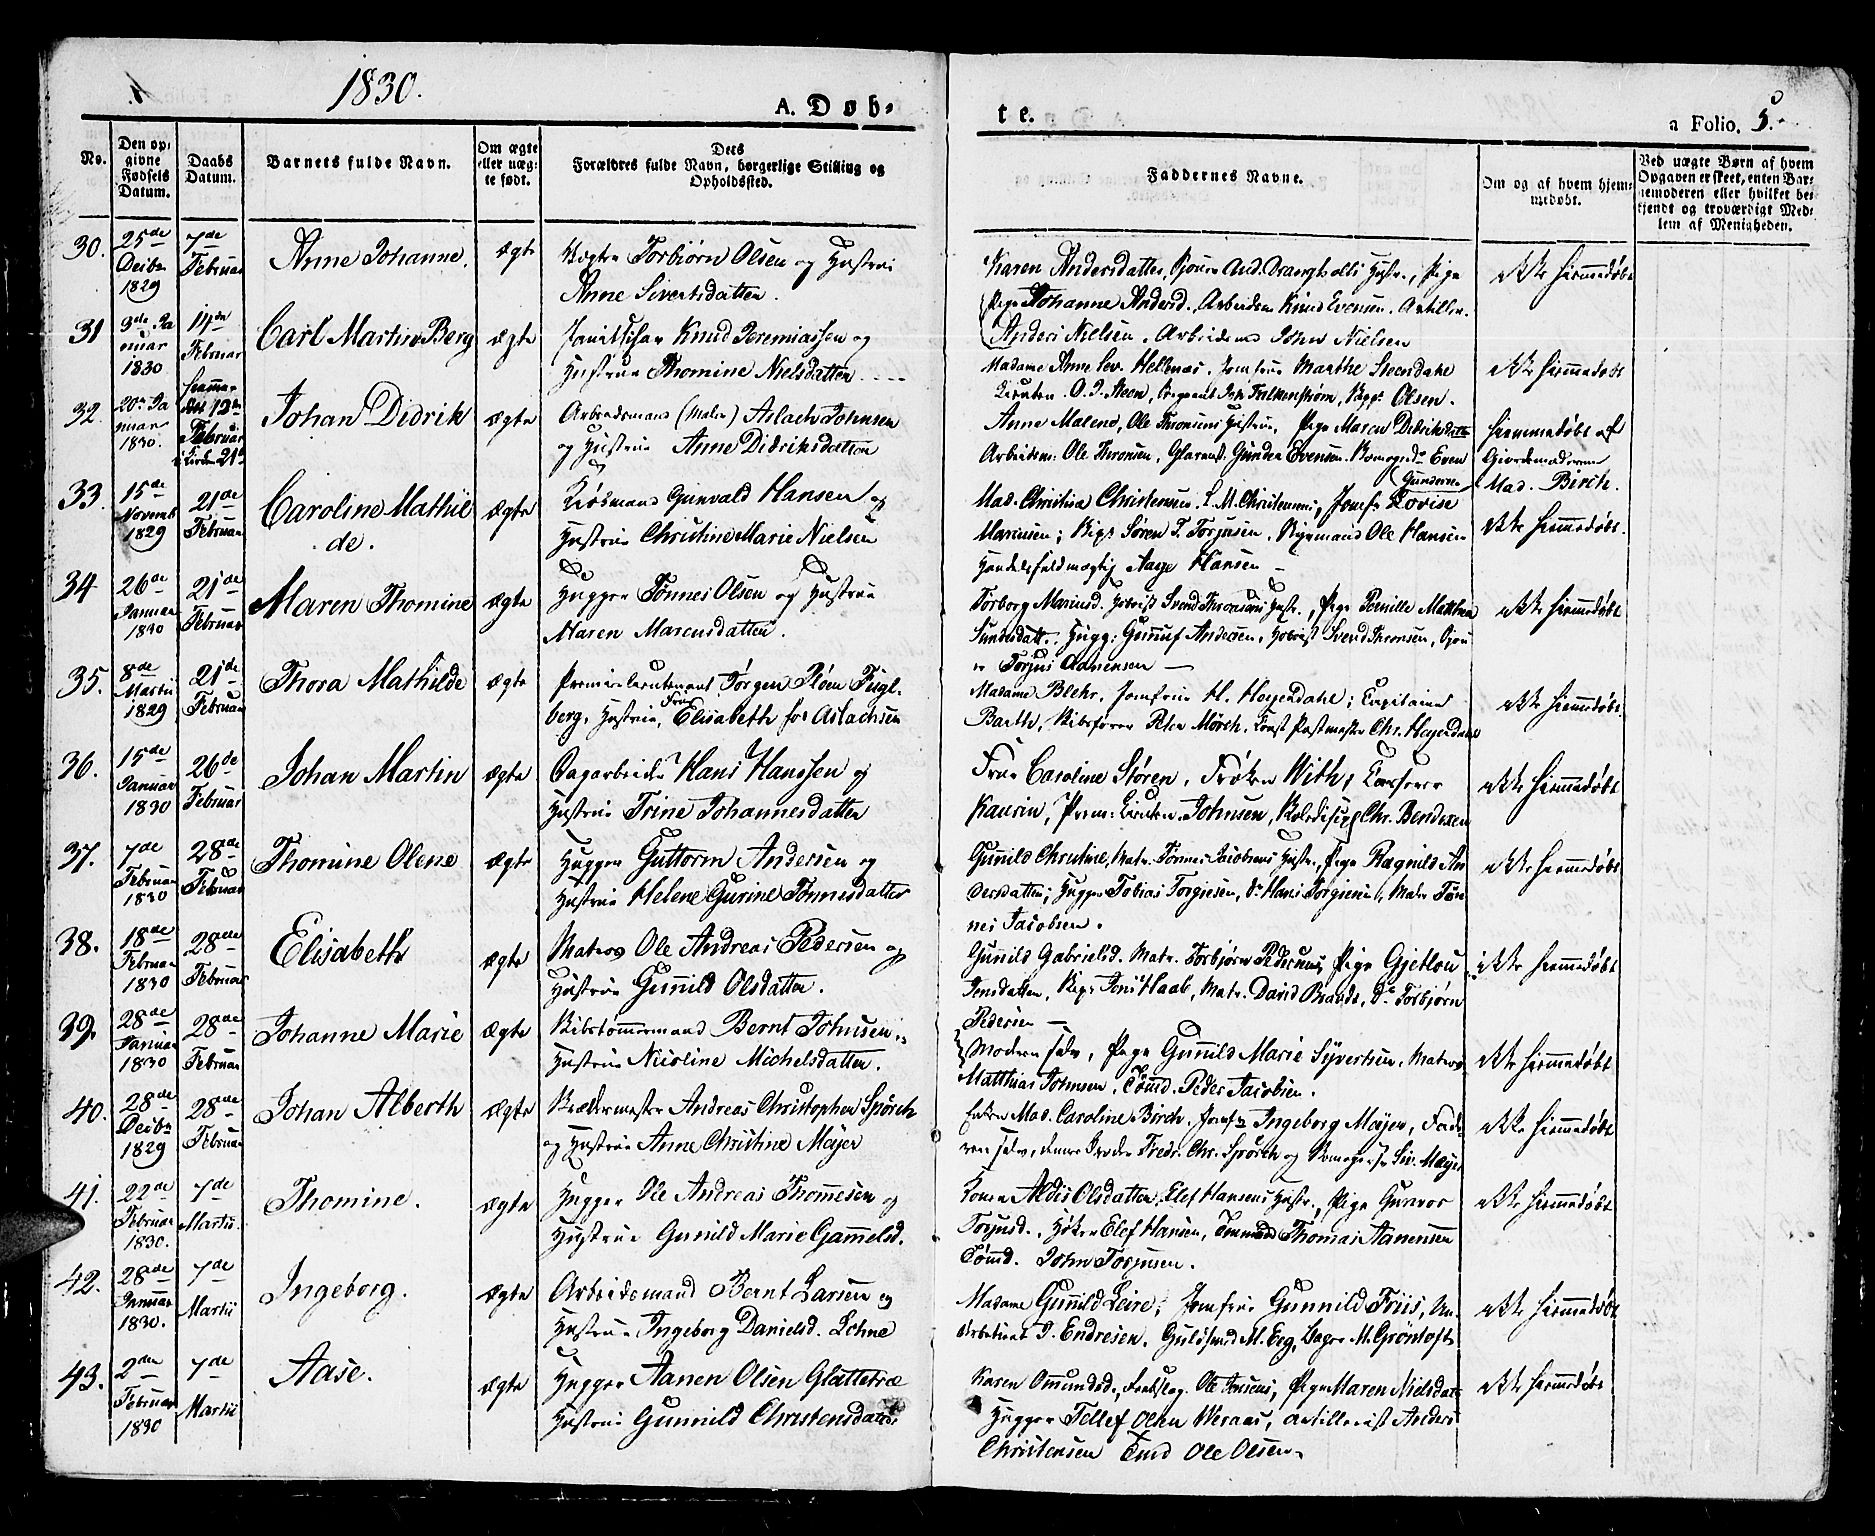 1830.
A. Døb-
te.
a Folio. 5.
No.
Den op-
givne
Fødsels
Datum.
Daabs
Datum.
Barnets fulde Navn.
Om ægte
eller uæg-
te født.
Dets
Forældres fulde Navn, borgerlige Stilling og
Opholdssted.
Faddernes Navne.
Om og af hvem hjem-
medøbt.
Ved uægte Børn af hvem
Opgaven er skeet, enten Bar-
nemoderen eller hvilket be-
kjendt og troværdigt Med-
lem af Menigheden.
30.
25de
Decbr
1829
7de
Februar
Anne Johanne.
ægte
Torbiørn Olsen og Hustrue
Anne Sivertsdatter.
Karen Andersdatter, And. Hustr., Pige
Pige Johanne Andersd. Arbeidsm. Knud Evensen. Artiller.
Anders Nielsen. Arbeidsmd John Nielsen
ikke hiemmedøbt
31
3de Ja
nuar
1830
14de
Februar
Carl Martin Berg
ægte
Knud Jeremiassen og
Hustrue Thomine Nielsdatter
Madame Anne Sev. Hellenæs. Jomfrue Marthe Steensdahl
O. J. Falkenstrøm, Olsen.
ikke hiemmedøbt
32.
20de Ja
nuar
1830.
hiemme-
døbt 13de
Februar
i Kirken 21de
Johan Didrik
ægte
Arbeidsmand (Maler) Aslach Johnsen
og Hustrue Anne Didriksdatter
Anne Malene, Ole Thronsens Hustrue, Pige Maren Didriksdatter
Arbeidsm: Ole Thronsen, Gunder Evensen. Even
Gundersen
hiemmedøbt af
Giordemoderen
Mad. Birch.
33.
15de
Novemb
1829
21de
Februar
Caroline Mathil
de.
ægte
Kiøbmand Gunvald Hansen og
Hustrue Christine Marie Nielsen
Mad. Christina Christensen. Jomfr. Lovise
Mariusen; Søren T. Torjusen. Ole Hansen
Handelsfuldmægtig Aage Hansen
ikke hiemmedøbt.
34
26de
Januar
1830
21de
Februar
Maren Thomine
ægte
Hugger Tønnes Olsen og Hustrue
Maren Marcusdatter.
Torborg Mariusd. Svend Thronsens Hustr., Pige Pernille Mathea
Hugg: Gunnuf Andersen, Svend Thronsen,
Torjus Aanensen
ikke hiemmedøbt
35.
8de
Martii
1829
21de
Februar
Thora Mathilde
ægte
Premierlieutenant Jørgen Fugl-
berg, Hustrue, Frue Elisabeth før Aslachsen
Madame Blehr. Jomfrue H. Høyerdahl; Capitaine
Barth, Skibsfører Peter Mørch. Postmester Chr. Høyerdahl
ikke hiemmedøbt.
36.
15de
Januar
1830
26de
Februar
Johan Martin
ægte
Dagarbeider Hans Hanssen og
Hustrue Trine Johannesdatter
Frue Caroline Støren, Frøken With,
Kaurin, Prem: Lieuten. Johnsen, Chr. Bendixen
ikke hiemmedøbt
37.
7de
Februar
1830
28de
Februar
Thomine Olene
ægte
Hugger Guttorm Andersen og
Hustrue Helene Gurine Tønnesdatter
Gunild Christine, Matr. Tønnes Jacobsens Hustr., Pige Ragnild An
dersdatter; Hugger Tobias Torgiesen, do Hans Torgiesen, Matr Tøn
nes Jacobsen.
ikke hiemmedøbt
38.
18de
Februar
1830
28de
Februar
Elisabeth
ægte
Matros Ole Andreas Pedersen og
Hustrue Gunild Olsdatter.
Gunild Gabrielsd. Matr. Torbjørn Pedersens, Pige Gjetlou
Jensdatter, Jens Haab, Matr. David Brands, do Torbjørn
Pedersen
ikke hiemmedøbt
39.
28de
Januar
1830
28de
Februar
Johanne Marie
ægte
Skibstømmermand Bernt Johnsen
Hustrue Nicoline Michelsdatter.
Moderen selv, Pige Gunild Marie Syvertsen, Matros
Matthias Johnsen. Tømd. Peder Jacobsen.
ikke hiemmedøbt
40.
28de
Decbr
1829
28de
Februar
Johan Alberth
ægte
Andreas Christopher Spørck
og Hustrue Anne Christine Mayer
Enken Mad. Caroline Birch. Jomfr Ingeborg Mayer, Fade-
ren selv, dennes Broder Fredr. Chr. Spørck og Siv. Mayer
ikke hiemmedøbt
41.
22de
Februar
1830.
7de
Martii.
Thomine.
ægte
Hugger Ole Andreas Thommesen og
Hustrue Gunild Marie Gammelsd.
Konen Aldis Olsdatter, Elef Hansens Hustr., Pige Guroe
Torjusd. Elef Hansen, Thomas Aanensen
Tømd. John Torjussen.
ikke hiemmedøbt
42.
28de
Januar
1830.
7de
Martii
Ingeborg.
ægte
Arbeidsmand Bernt Larsen og
Hustrue Ingeborg Danielsd. Lohne
Madame Gunnild Leire, Jomfrue Gunnild Friis, Un
J. Endresen. Guldsmed M. Eeg, Bager M. Grøntoft
ikke hiemmedøbt
43.
2den
Februar
1830
7de
Martii
Aase.
ægte
Hugger Aanen Olsen Glattetræ
Hustrue Gunnild Christensdatter
Karen Ommundsd., Ole Jensens, Pige Maren Nielsdatr
Hugger Tellef Olsen Weraas, Artillerist Anders
Christensen Tmd Ole Olsen.
ikke hiemmedøbt